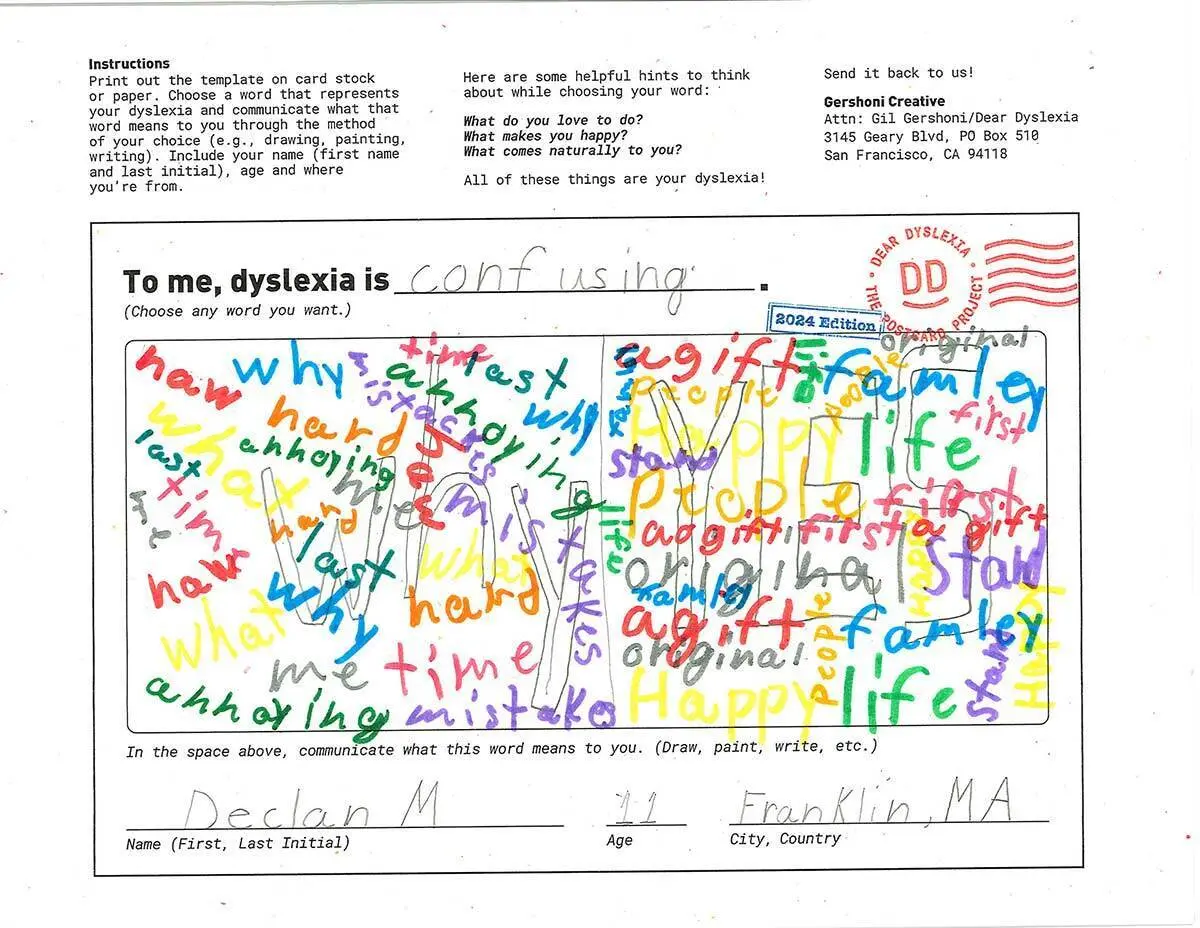 Instructions
Print out the template on card stock
or paper. Choose a word that represents
your dyslexia and communicate what that
word means to you through the method
of your choice (e.g., drawing, painting,
writing). Include your name (first name
and last initial), age and where
you're from.
Here are some helpful hints to think
about while choosing your word:
What do you love to do?
What makes you happy?
What comes naturally to you?
All of these things are your dyslexia!
Send it back to us!
Gershoni Creative
Attn: Gil Gershoni/Dear Dyslexia
3145 Geary Blvd, PO Box 510
San Francisco, CA 94118
To me, dyslexia is confusing.
(Choose any word you want.)
DEAR DYSLEXIA · THE POSTCARD PROJECT ·
DD
2024 Edition
haw
why
mistackes
time
annoying
last
why
what
hard
annoying
last
haw
me
mistakes
me
time
hard
last
what
haw
why
hard
what
me
time
annoying
mistakes
WHY
famley
a gift
life
people
famley
original
people
first
Happy
life
stand
people
first
life
a gift
first
a gift
original
stand
Happy
famley
a gift
people
famley
original
stand
Happy
Happy
life
YES
In the space above, communicate what this word means to you. (Draw, paint, write, etc.)
Declan M
11
Franklin, MA
Name (First, Last Initial)
Age
City, Country